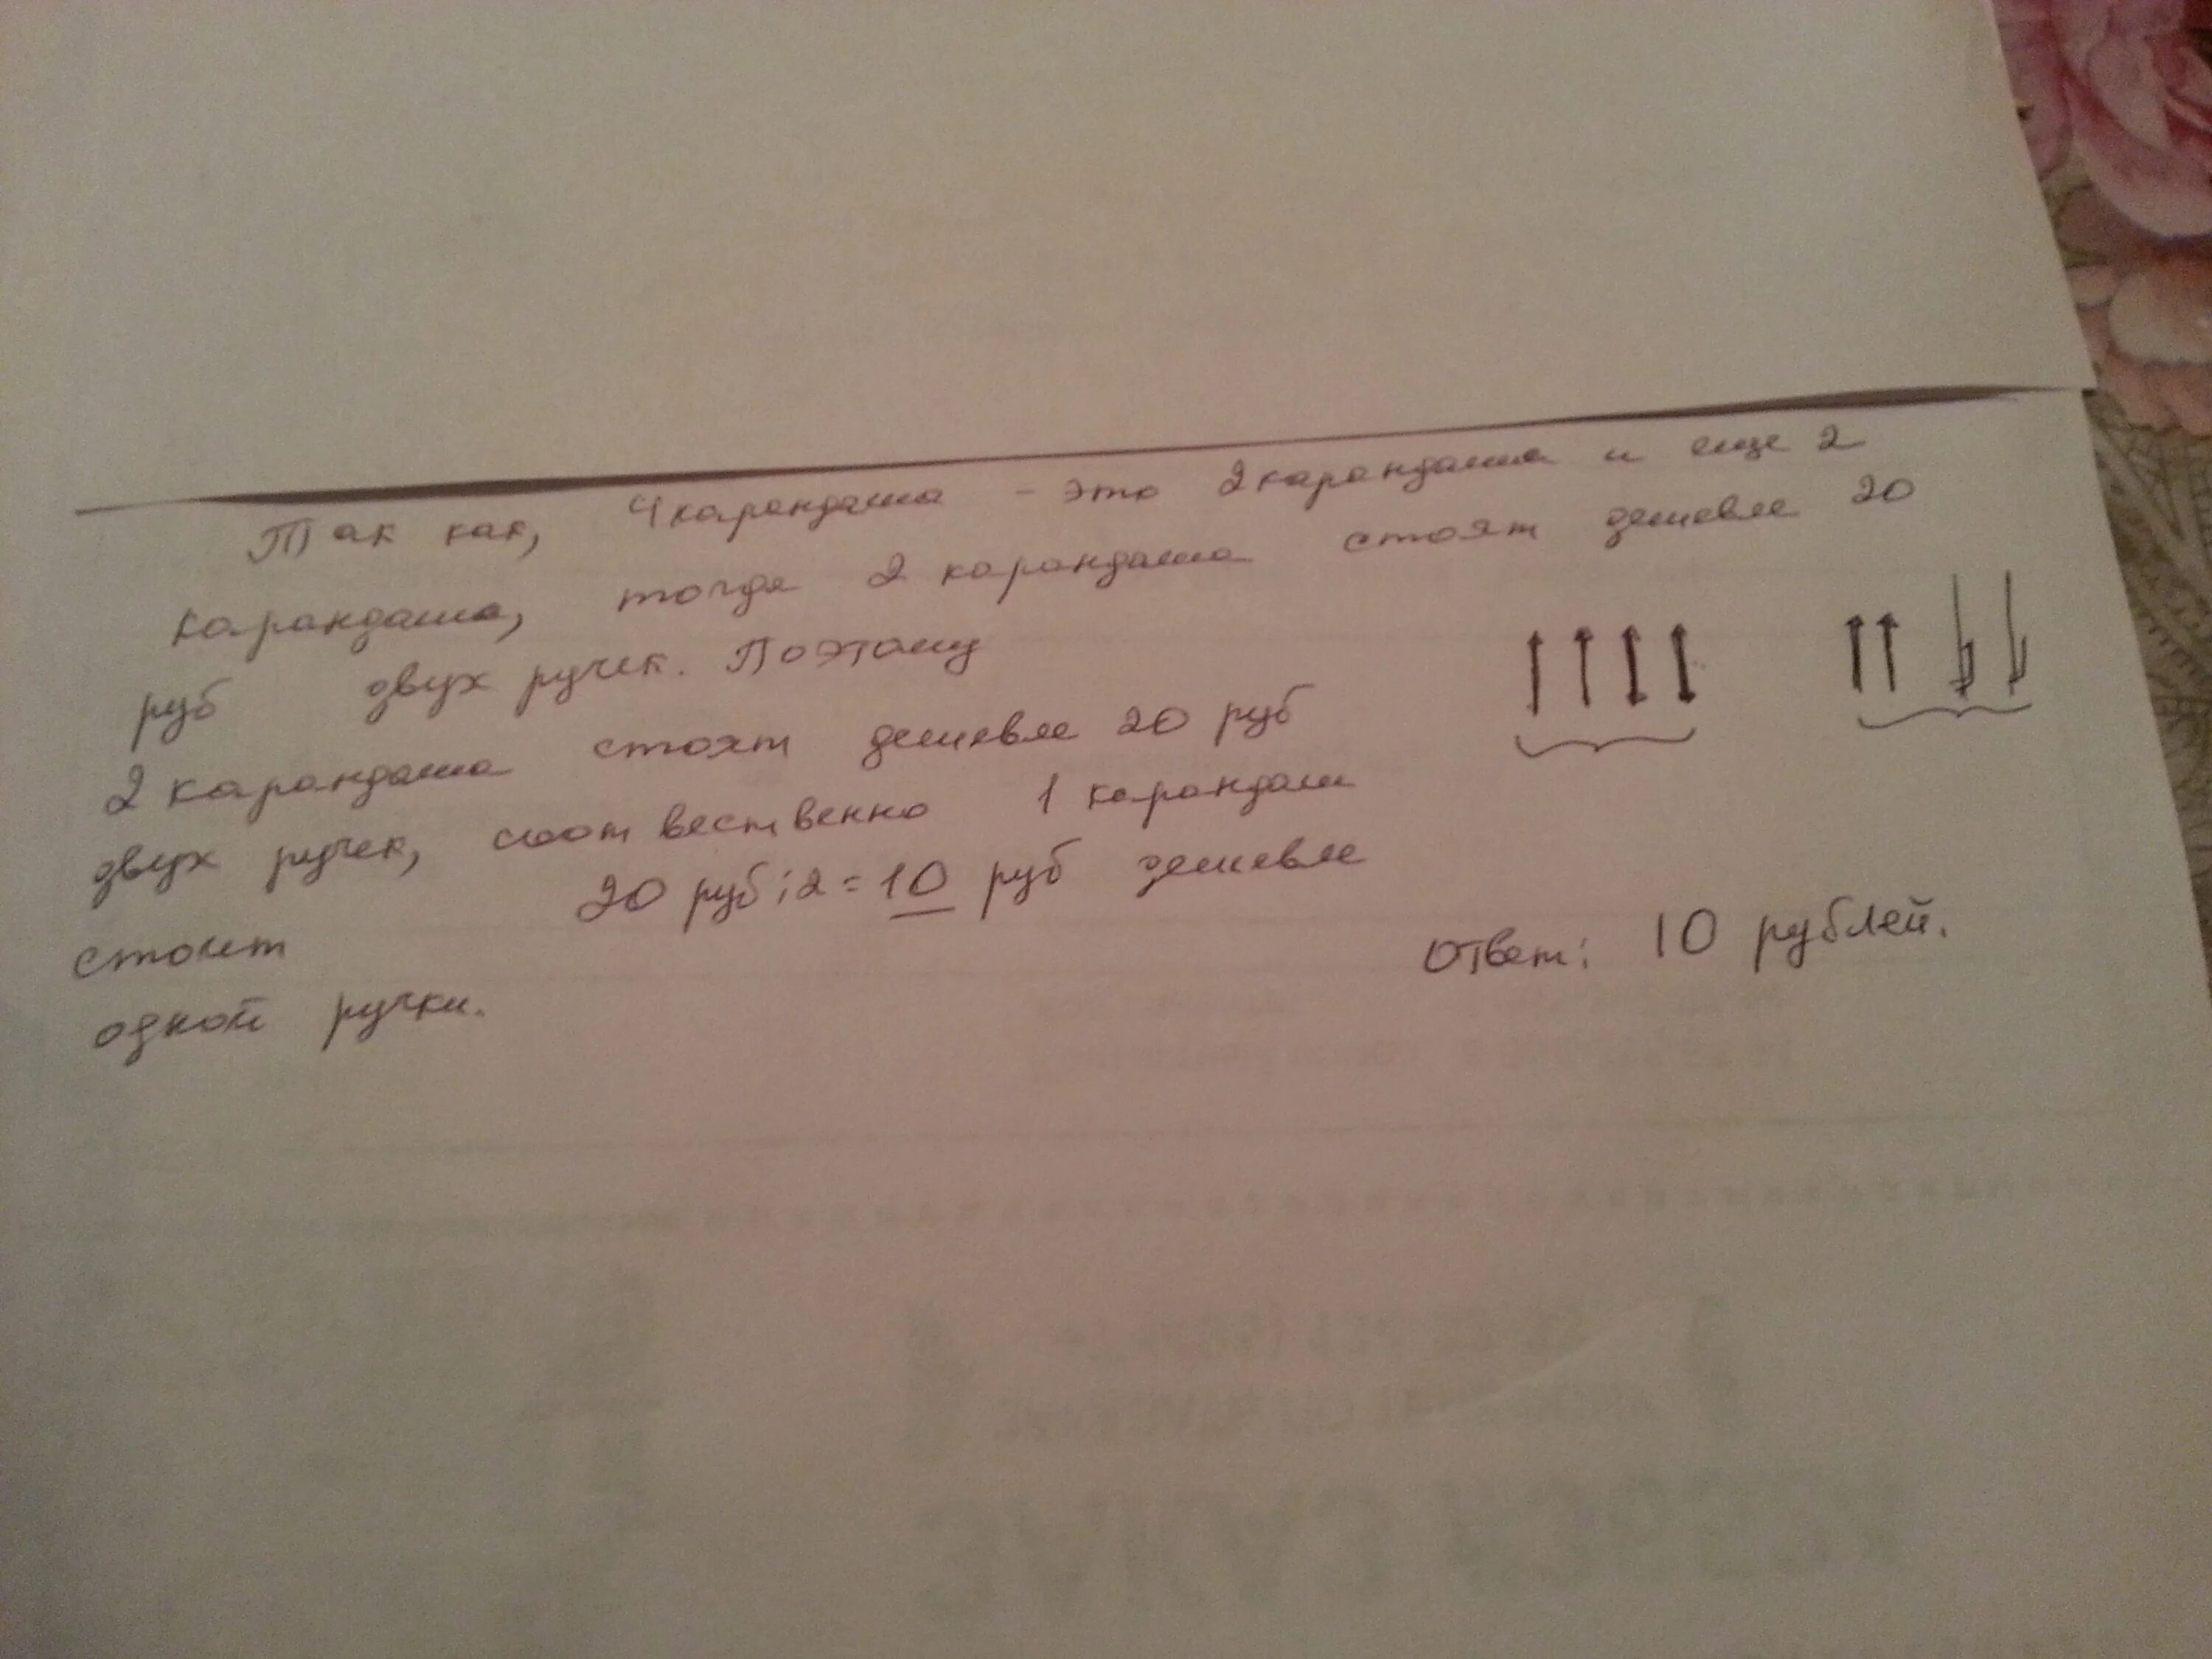 Так как, 4 карандаша - это 2 карандаша и еще 2
карандаша, тогда 2 карандаша стоят дешевле 20
руб двух ручек. Поэтому
2 карандаша стоят дешевле 20 руб
двух ручек, соотвественно 1 карандаш
стоит 20 руб:2=10 руб дешевле
одной ручки.
Ответ: 10 рублей.